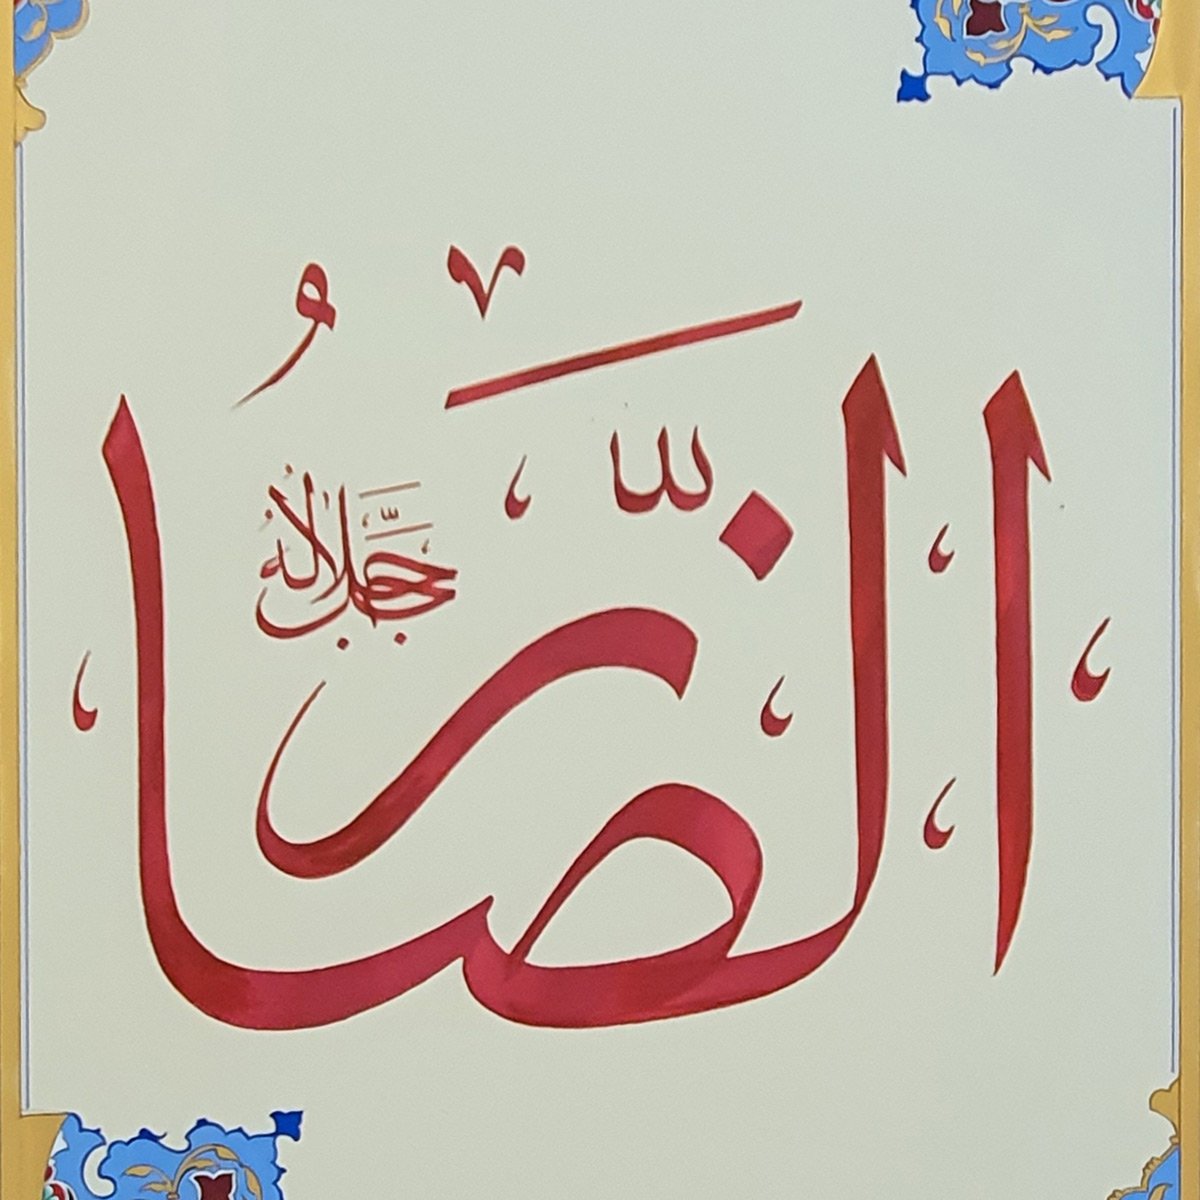 الضَّارُ
جل جلاله